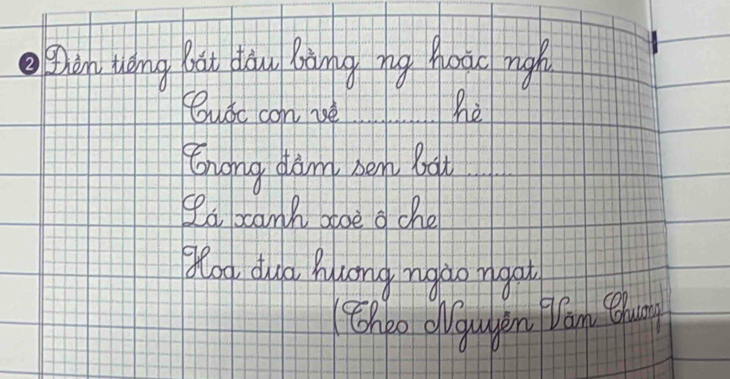 ② Điền tiếng bắt đầu bằng ng hoặc ngh
Cuốc con về ........... hè
Trong đầm sen bát ......
Lá xanh xoè ô che
Hoa đưa hương ngào ngạt
(Theo Nguyễn Văn Chương)